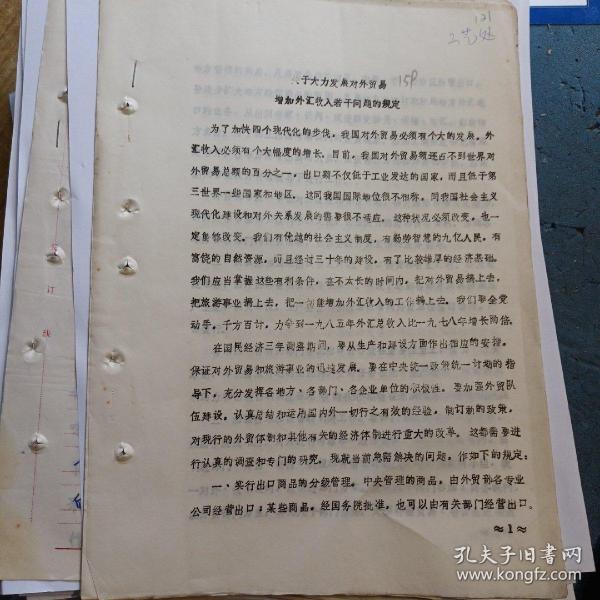 121
工艺处
关于大力发展对外贸易
15P
增加外汇收入若干问题的规定
为了加快四个现代化的步伐，我国对外贸易必须有个大的发展，外
汇收入必须有个大幅度的增长。目前，我国对外贸易额还占不到世界对
外贸易总额的百分之一，出口额不仅低于工业发达的国家，而且低于第
三世界一些国家和地区。这同我国国际地位很不相称，同我国社会主义
现代化建设和对外关系发展的需要很不适应。这种状况必须改变，也一
定能够改变。我们有优越的社会主义制度，有勤劳智慧的九亿人民，有
富饶的自然资源，而且经过三十年的建设，有了比较雄厚的经济基础。
我们应当掌握这些有利条件，在不太长的时间内，把对外贸易搞上去，
把旅游事业搞上去，把一切能增加外汇收入的工作搞上去。我们要全党
动手，千方百计，力争到一九八五年外汇总收入比一九七八年增长两倍。
在国民经济三年调整期间，要从生产和建设方面作出相应的安排，
保证对外贸易和旅游事业的迅速发展。要在中央统一政策统一计划的指
导下，充分发挥各地方、各部门、各企业单位的积极性。要加强外贸队
伍建设。认真总结和运用国内外一切行之有效的经验，制订新的政策，
对现行的外贸体制和其他有关的经济体制进行重大的改革。这都需要进
行认真的调查和专门的研究。现就当前急需解决的问题，作如下的规定：
一、实行出口商品的分级管理。中央管理的商品，由外贸部各专业
公司经营出口；某些商品，经国务院批准，也可以由有关部门经营出口。
≈1≈
订
线
孔夫子旧书网
www.kongfz.com